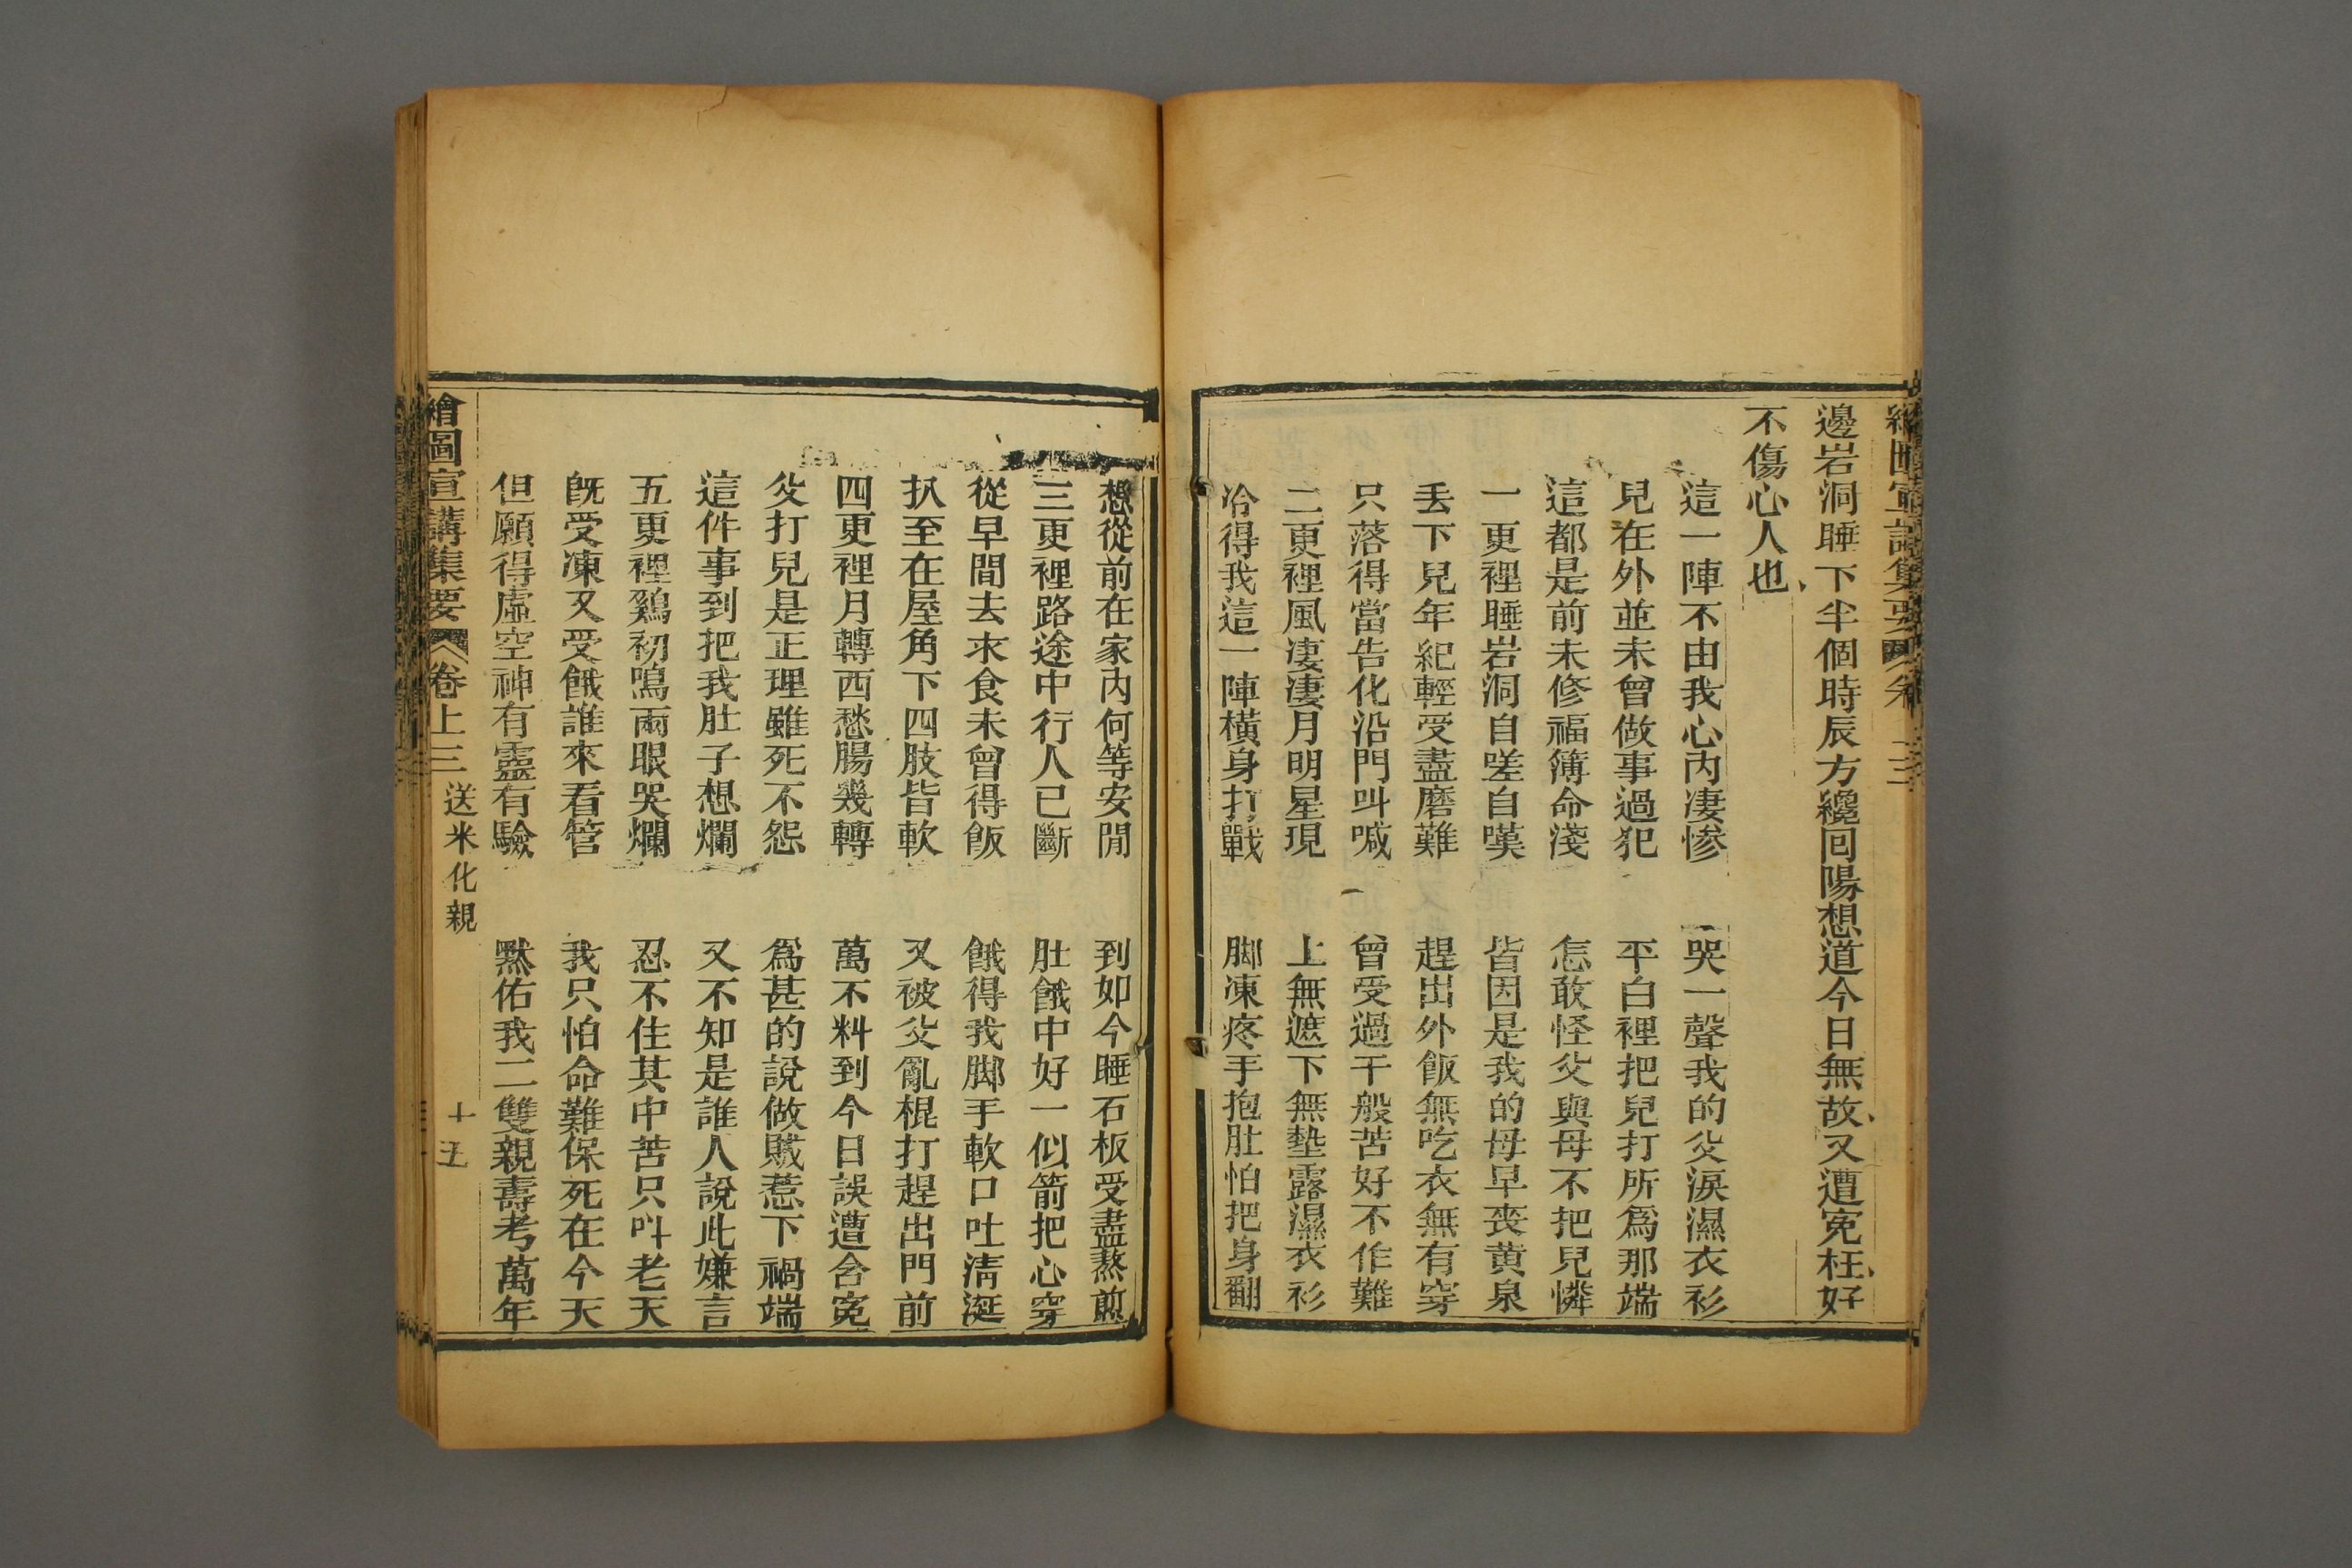 邊岩洞睡下半個時辰方纔回陽想道今日無故又遭冤枉好
不傷心人也
這一陣不由我心內凄慘 哭一聲我的父淚濕衣衫
兒在外並未曾做事過犯 平白裡把兒打所為那端
這都是前未修福簿命淺 怎敢怪父與母不把兒憐
一更裡睡岩洞自嗟自嘆 皆因是我的母早喪黃泉
丢下兒年紀輕受盡磨難 趕出外飯無吃衣無有穿
只落得當告化沿門叫喊 曾受過千般苦好不作難
二更裡風凄凄月明星現 上無遮下無墊露濕衣衫
冷得我這一陣橫身打戰 脚凍疼手抱肚怕把身翻
想從前在家內何等安閒 到如今睡石板受盡熬煎
三更裡路途中行人已斷 肚餓中好一似箭把心穿
從早間去求食未曾得飯 餓得我脚手軟口吐清涎
扒至在屋角下四肢皆軟 又被父亂棍打趕出門前
四更裡月轉西愁腸幾轉 萬不料到今日誤遭含冤
父打兒是正理雖死不怨 為甚的說做賊惹下禍端
這件事到把我肚子想爛 又不知是誰人說此嫌言
五更裡鷄初鳴兩眼哭爛 忍不住其中苦只叫老天
既受凍又受餓誰來看管 我只怕命難保死在今天
但願得虛空神有靈有驗 默佑我二雙親壽考萬年
繪圖宣講集要 卷上三 送米化親 十五